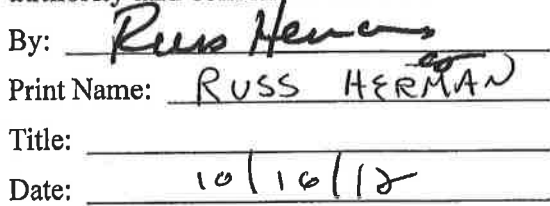 By: Russ Herman
Print Name: RUSS HERMAN
Title:
Date: 10/16/12